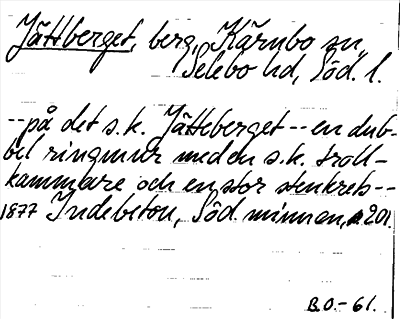 Jättberget, berg, Kärnbo sn,
Selebo hd, Söd. l.
--på det s.k. Jätteberget -- en dub-
bel ringmur med en s.k. troll-
kammare och en stor stenkrets--
1877 Indebetou, Söd. minnen, s 201.
B.O.-61.